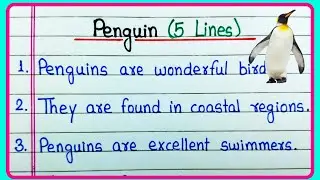 Penguin (5 Lines)
1. Penguins are wonderful bird
2. They are found in coastal regions.
3. Penguins are excellent swimmers.